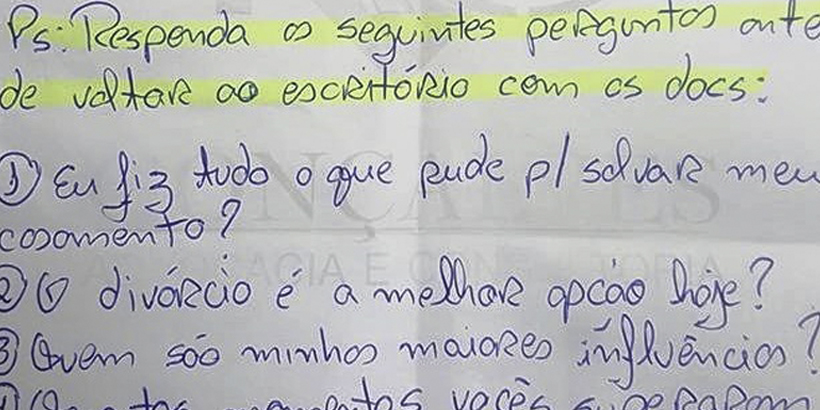 Ps: Responda as seguintes perguntas ante
de voltar ao escritório com os docs:
① Eu fiz tudo o que pude p/ salvar meu
casamento?
② O divórcio é a melhor opção hoje?
③ Quem são minhas maiores influências?
vocês superaram
ADVOCACIA E CONSULTORIA